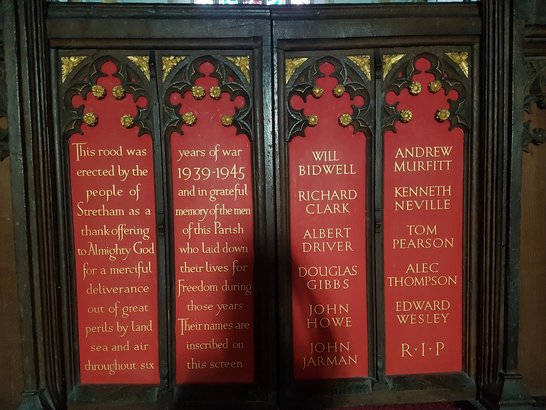 This rood was
erected by the
people of
Stretham as a
thank-offering
to Almighty God
for a merciful
deliverance
out of great
perils by land
sea and air
throughout six
years of war
1939-1945
and in grateful
memory of the men
of this Parish
who laid down
their lives for
Freedom during
those years
Their names are
inscribed on
this screen
WILL
BIDWELL
RICHARD
CLARK
ALBERT
DRIVER
DOUGLAS
GIBBS
JOHN
HOWE
JOHN
JARMAN
ANDREW
MURFITT
KENNETH
NEVILLE
TOM
PEARSON
ALEC
THOMPSON
EDWARD
WESLEY
R·I·P